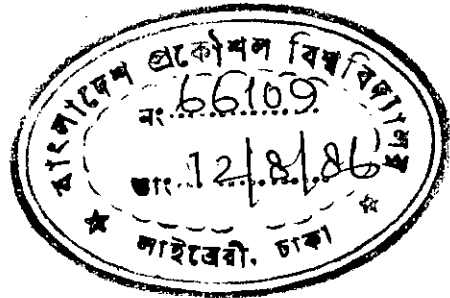 বাংলাদেশ প্রকৌশল বিশ্ববিদ্যালয়
নং 66109
তাং 12/8/86
লাইব্রেরী, ঢাকা